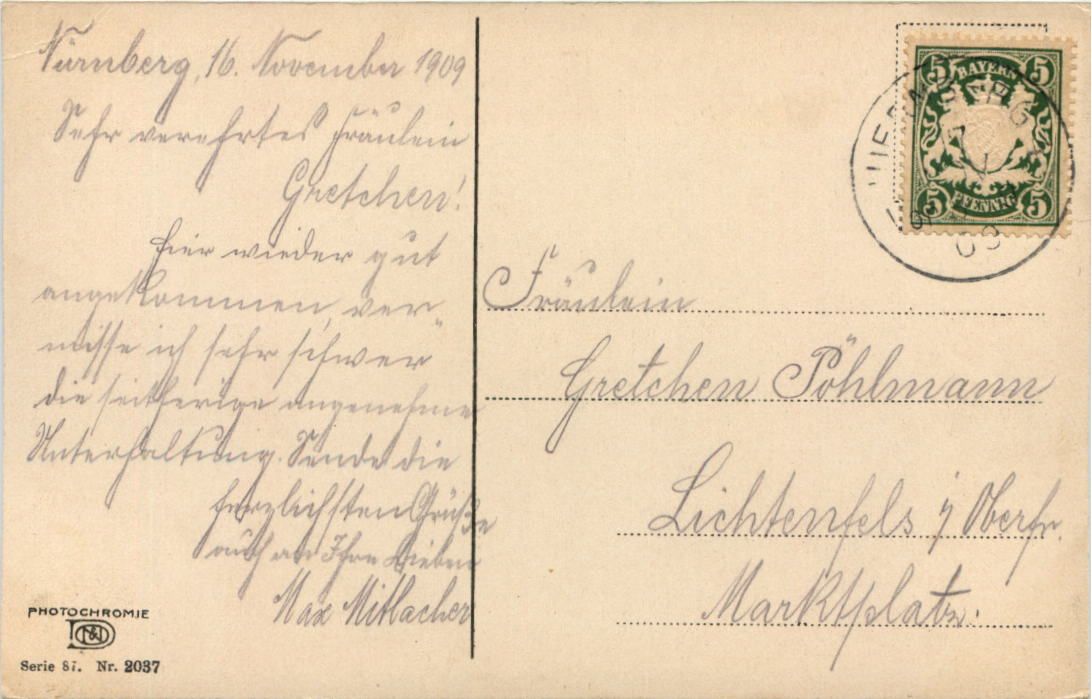 Nürnberg, 16. November 1909
Sehr verehrtes Fräulein
Gretchen!
Hier wieder gut
angekommen, ver-
misse ich sehr schwer
die seitherige angenehme
Unterhaltung. Sende die
herzlichsten Grüße
auch an Ihre Lieben
Max Mitlacher
PHOTOCHROMIE
Serie 87. Nr. 2037
BAYERN
5 5
5 5
PFENNIG
09
Fräulein
Gretchen Pöhlmann
Lichtenfels i/Oberfr.
Marktplatz.